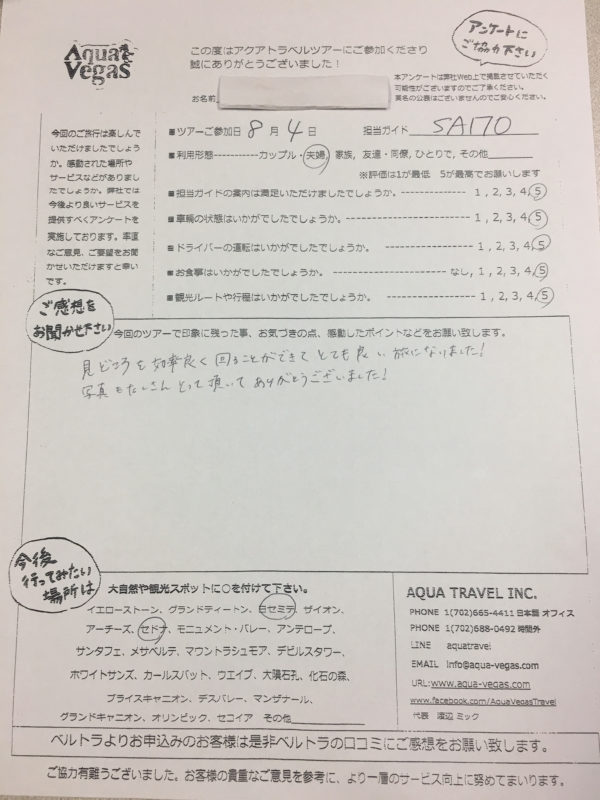 Aqua Vegas
この度はアクアトラベルツアーにご参加くださり
誠にありがとうございました!
アンケートに
ご協力下さい
本アンケートは弊社Web上で掲載させていただく
可能性がございますのでご了承ください。
実名の公表はございませんのでご安心ください。
■お名前
今回のご旅行は楽しんで
いただけましたでしょう
か。感動された場所や
サービスなどがありまし
たでしょうか。弊社では
今後より良いサービスを
提供すべくアンケートを
実施しております。率直
なご意見、ご要望をお聞
かせいただけますと幸い
です。
■ツアーご参加日 8 月 4 日 担当ガイド SAITO
■利用形態-----------カップル・夫婦, 家族, 友達・同僚, ひとりで, その他
※評価は1が最低 5が最高でお願いします
■担当ガイドの案内は満足いただけましたでしょうか。 1 , 2, 3, 4, 5
■車輌の状態はいかがでしたでしょうか。 1 , 2, 3, 4, 5
■ドライバーの運転はいかがでしたでしょうか。 1 , 2, 3, 4, 5
■お食事はいかがでしたでしょうか。 なし, 1 , 2, 3, 4, 5
■観光ルートや行程はいかがでしたでしょうか。 1 , 2, 3, 4, 5
ご感想を
お聞かせ下さい
今回のツアーで印象に残った事、お気づきの点、感動したポイントなどをお願い致します。
見どころを効率良く回ることができてとても良い旅になりました!
写真もたくさんとって頂いてありがとうございました!
今後
行ってみたい
場所は
大自然や観光スポットに○を付けて下さい。
イエローストーン、グランドティートン、ヨセミテ、ザイオン、
アーチーズ、セドナ、モニュメント・バレー、アンテロープ、
サンタフェ、メサベルテ、マウントラシュモア、デビルスタワー、
ホワイトサンズ、カールスバット、ウエイブ、大隕石孔、化石の森、
ブライスキャニオン、デスバレー、マンザナール、
グランドキャニオン、オリンピック、セコイア その他
AQUA TRAVEL INC.
PHONE 1(702)665-4411 日本語 オフィス
PHONE 1(702)688-0492 時間外
LINE aquatravel
EMAIL info@aqua-vegas.com
URL:www.aqua-vegas.com
www.facebook.com/AquaVegasTravel
代表 渡辺 ミック
ベルトラよりお申込みのお客様は是非ベルトラの口コミにご感想をお願い致します。
ご協力有難うございました。お客様の貴重なご意見を参考に、より一層のサービス向上に努めてまいります。